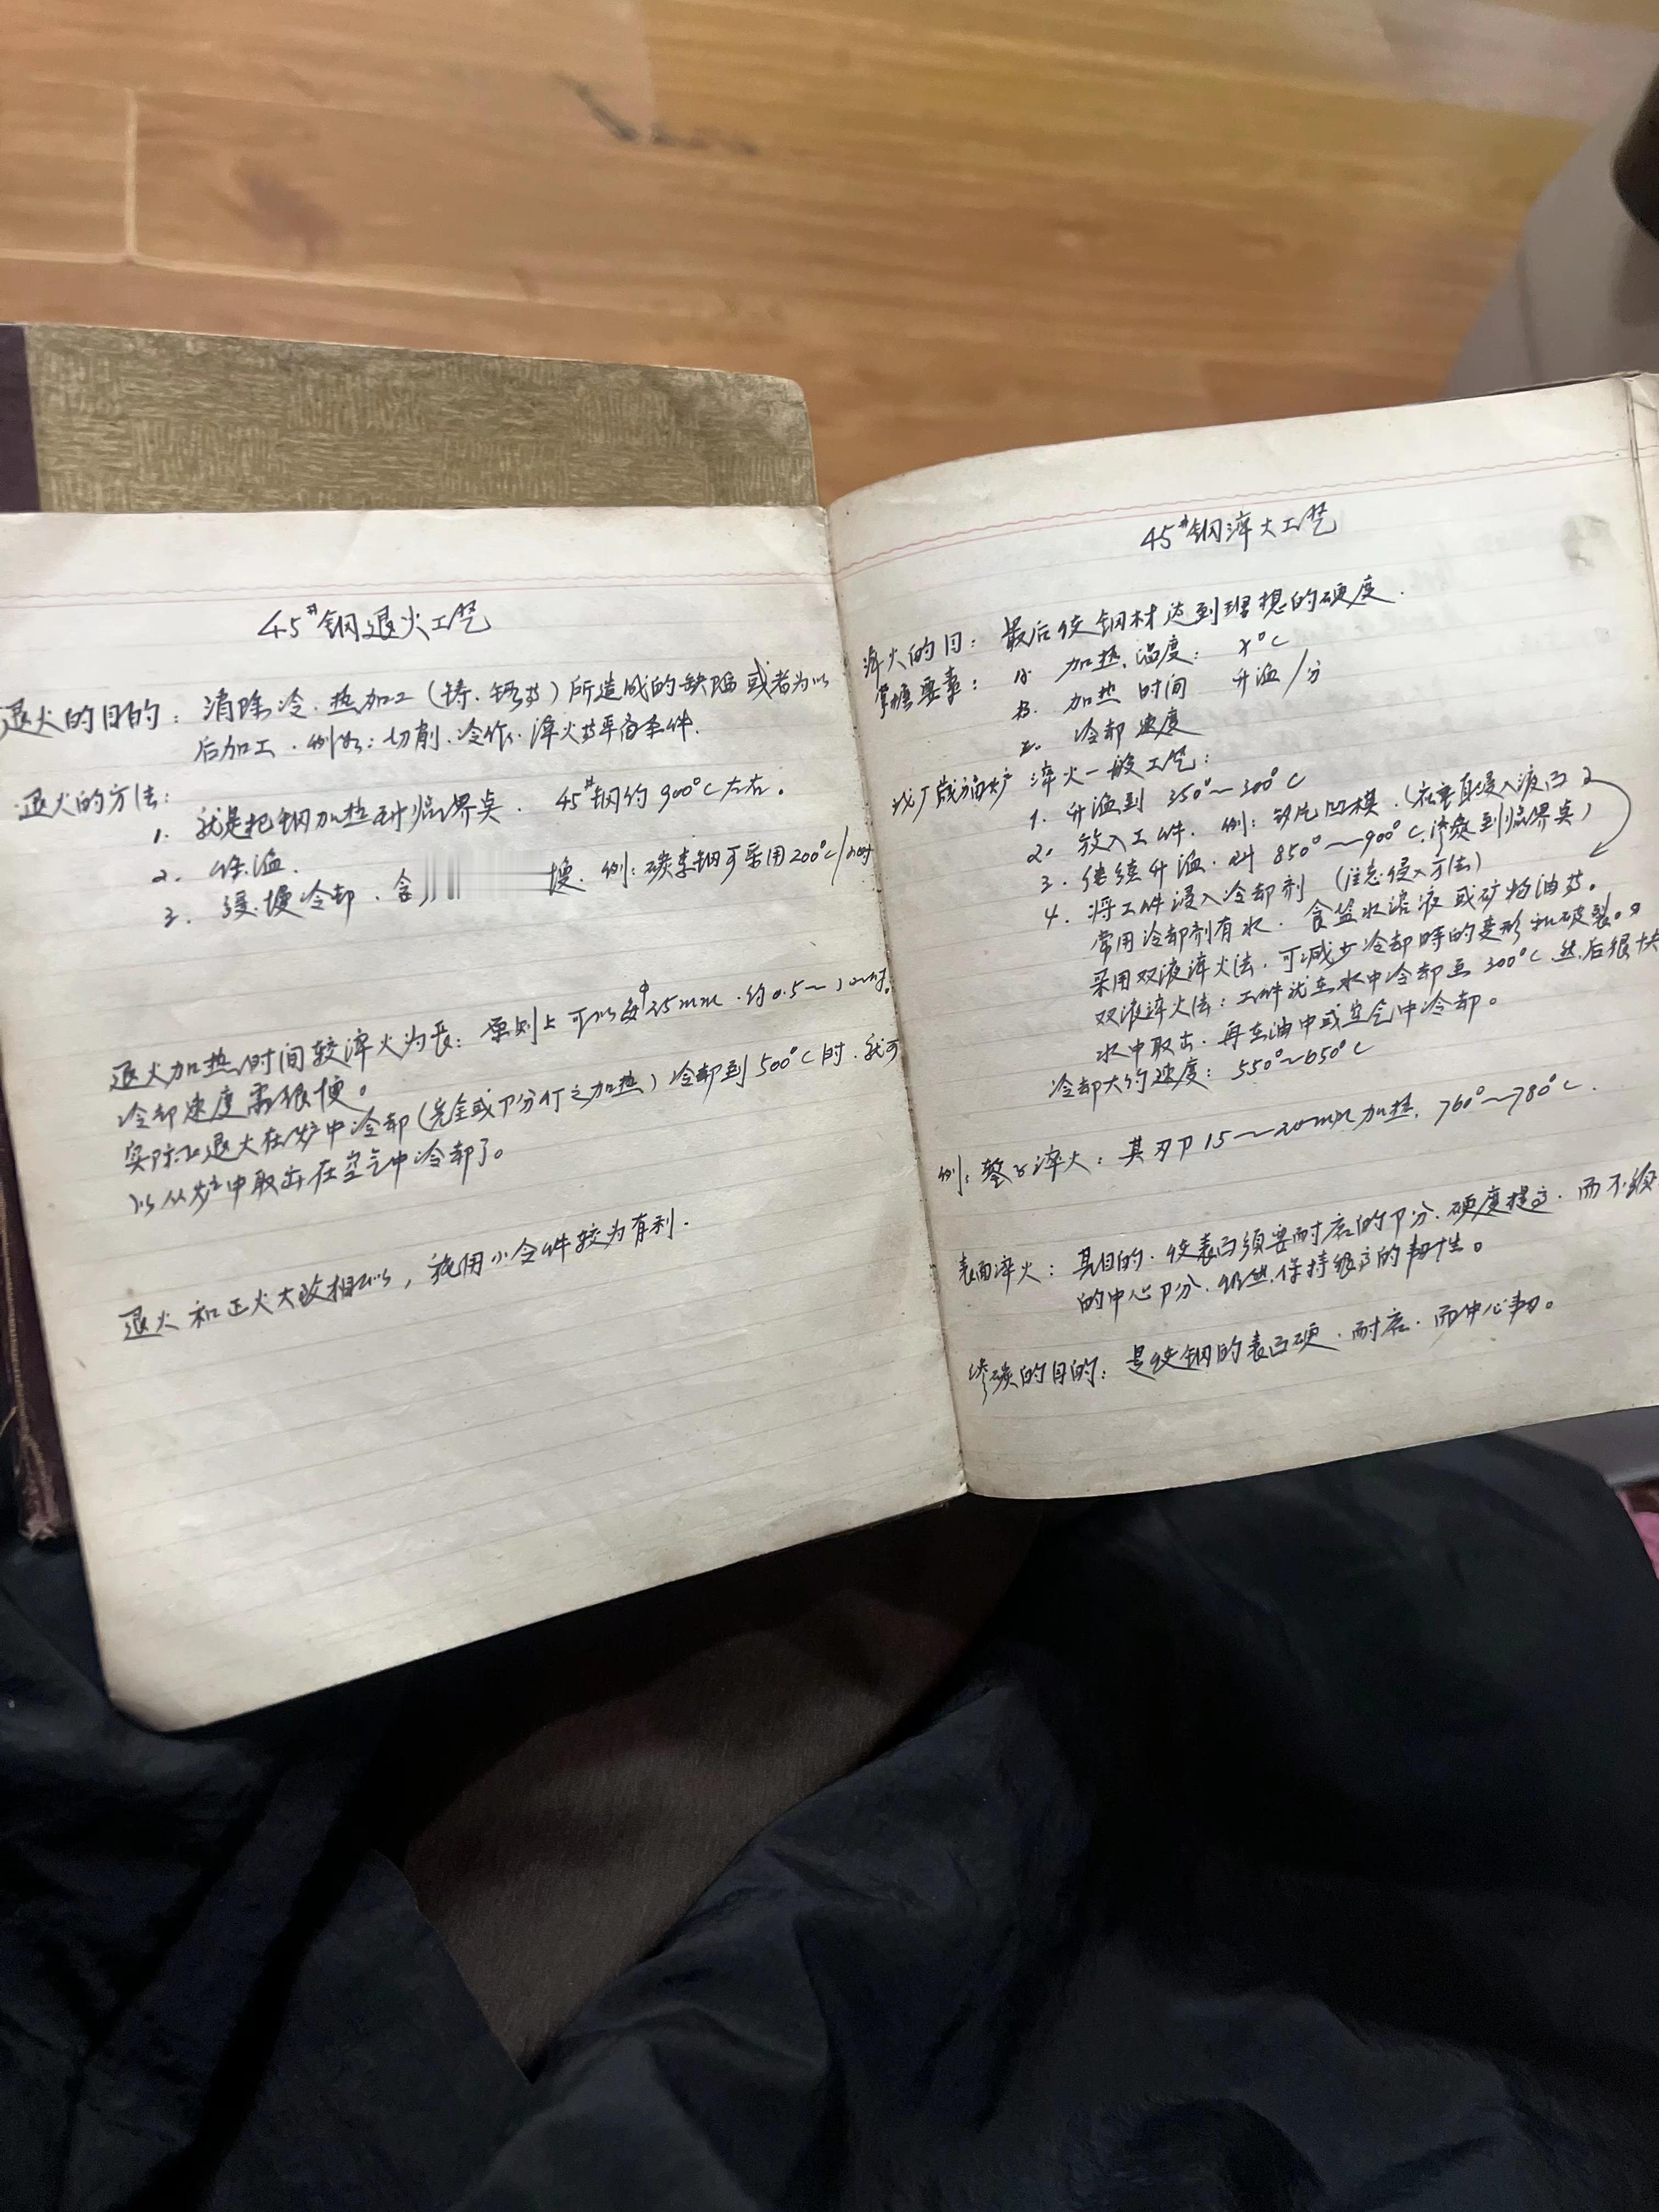 45#钢退火工艺
退火的目的：消除冷、热加工（铸、锻等）所造成的缺陷或者为以
后加工．例如：切削、冷作、淬火等准备条件．
退火的方法：
1. 就是把钢加热到临界点． 45#钢约900°C左右．
2. 保温．
3. 缓慢冷却． 慢．例：碳素钢可采用200°C/小时
退火加热时间较淬火为长：原则上可以每φ25mm．约0.5～1小时．
冷却速度需很慢。
实际上退火在炉中冷却（完全或部分行之加热）冷却到500°C时．就可
以从炉中取出在空气中冷却了。
退火和正火大致相似，
小 件较为有利．
45#钢淬火工艺
淬火的目：最后使钢材达到理想的硬度．
掌握要素： 加热温度： x°C
加热时间 升温/分
冷却速度
我厂 淬火一般工艺：
1. 升温到 350°～300°C
2. 放入工件．例： 凹模．（ 垂直浸入液面）
3. 继续升温．到850°～900°C． 到临界点）
4. 将工件浸入冷却剂（注意浸入方法）
常用冷却剂有水．食盐水溶液或矿物油等。
采用双液淬火法．可减少冷却时的变形和破裂。
双液淬火法：工件先在水中冷却至300°C然后很快
水中取出．再在油中或空气中冷却。
冷却大约速度：550°～650°C
例：錾子淬火：其刃部15～20mm加热．760°～780°C．
表面淬火：其目的．使表面须要耐磨的部分．硬度提高．而不
的中心部分．仍然保持 的韧性。
渗碳的目的：是使钢的表面硬．耐磨．而中心韧。